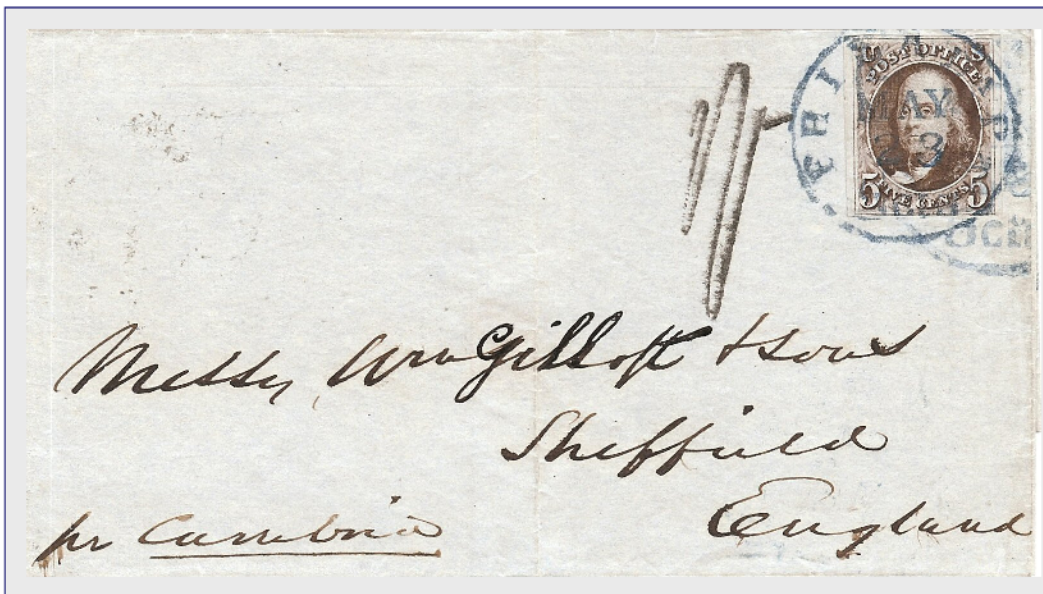 POST OFFICE
MAY
23
5 FIVE CENTS 5
Messrs Wm Gillott & Sons
Sheffield
England
pr Cambria